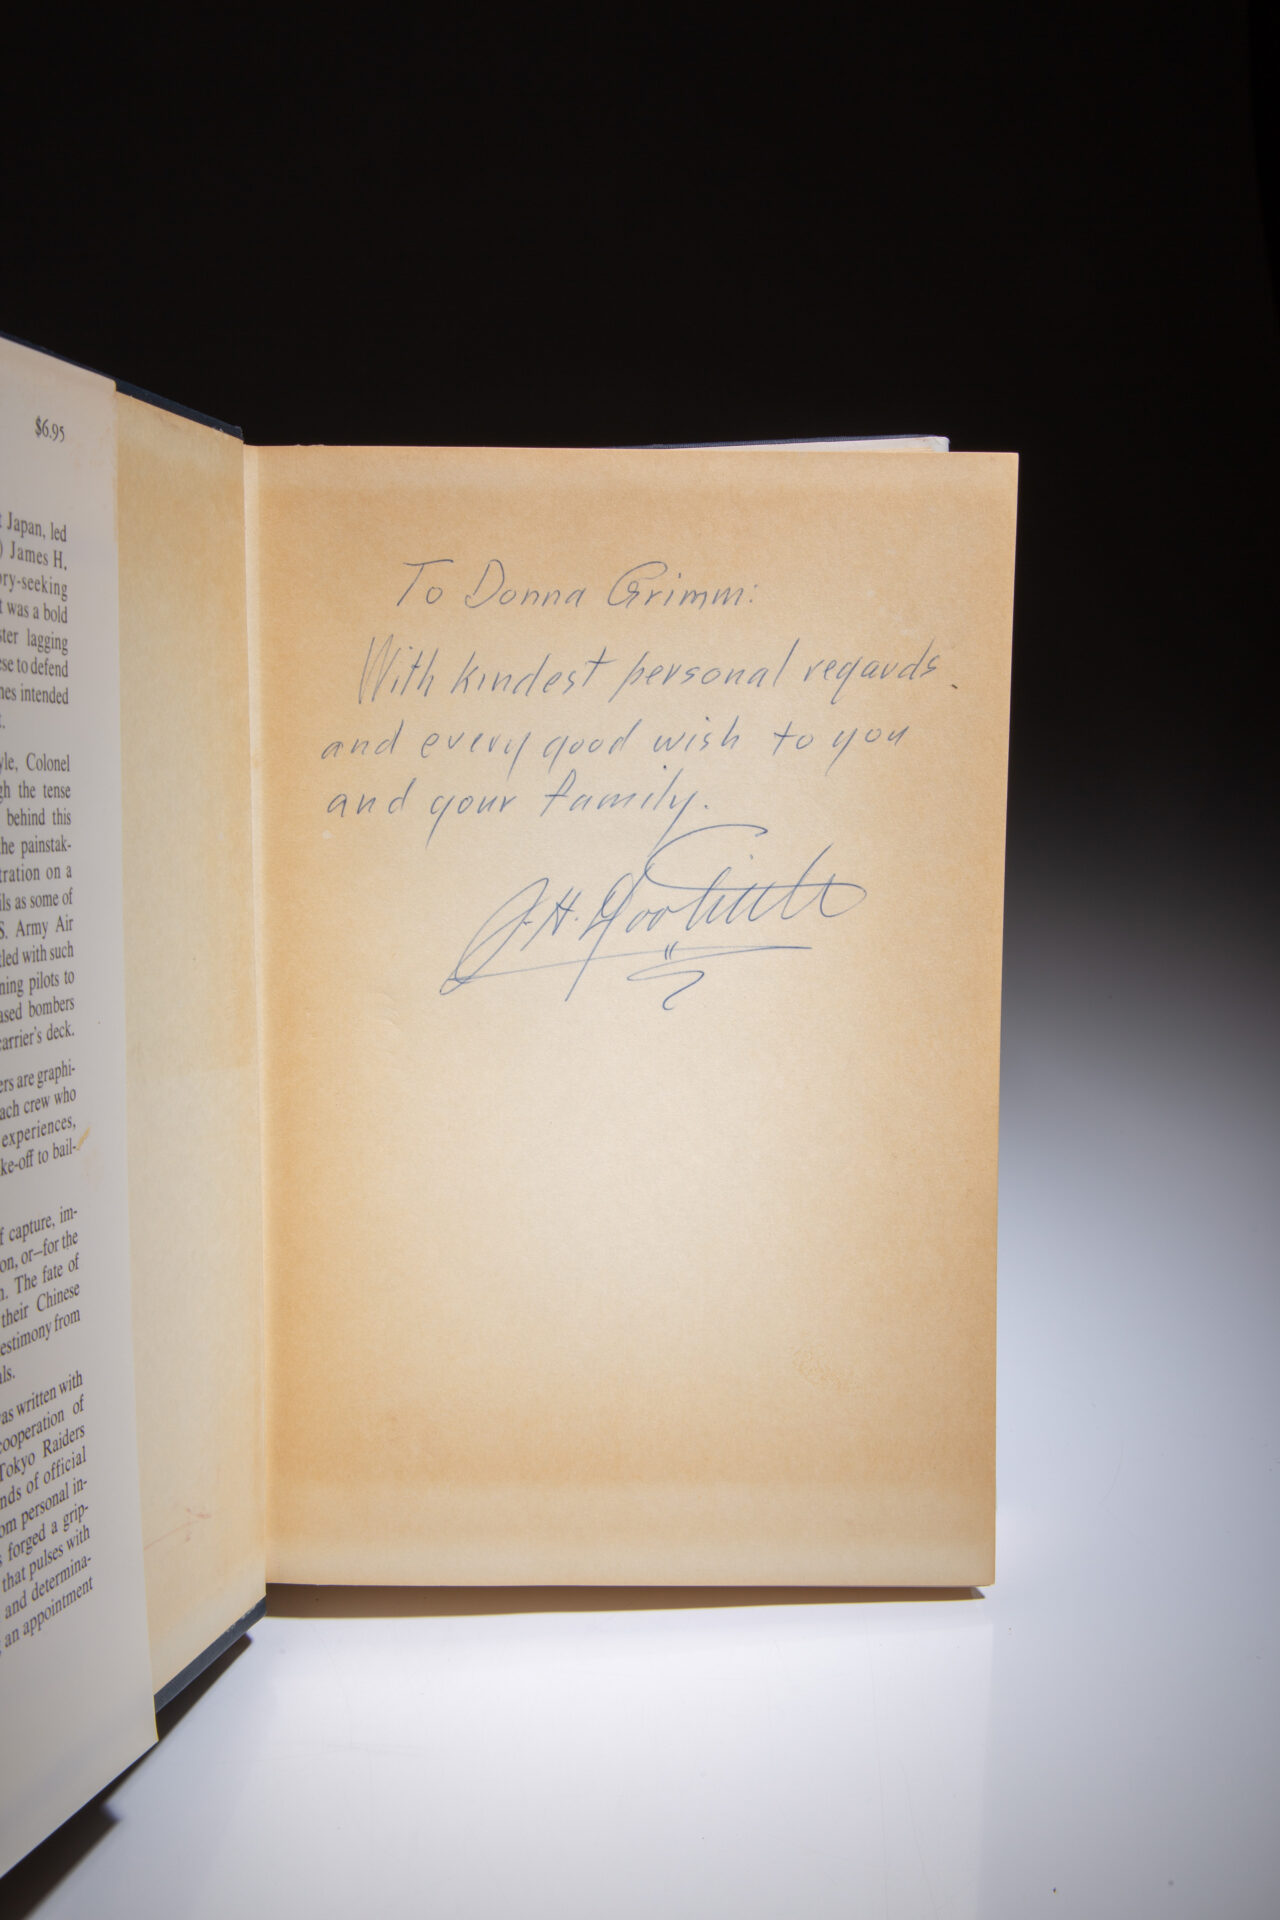 $6.95
Japan, led
) James H.
ory-seeking
t was a bold
ster lagging
ese to defend
nes intended
t.
yle, Colonel
gh the tense
behind this
he painstak-
tration on a
ils as some of
S. Army Air
tled with such
ning pilots to
ased bombers
carrier's deck.
ers are graphi-
ach crew who
experiences,
ke-off to bail-
f capture, im-
on, or—for the
n. The fate of
their Chinese
estimony from
als.
as written with
cooperation of
Tokyo Raiders
nds of official
om personal in-
s forged a grip-
that pulses with
and determina-
an appointment
To Donna Grimm:
With kindest personal regards
and every good wish to you
and your family.
J. H. Doolittle